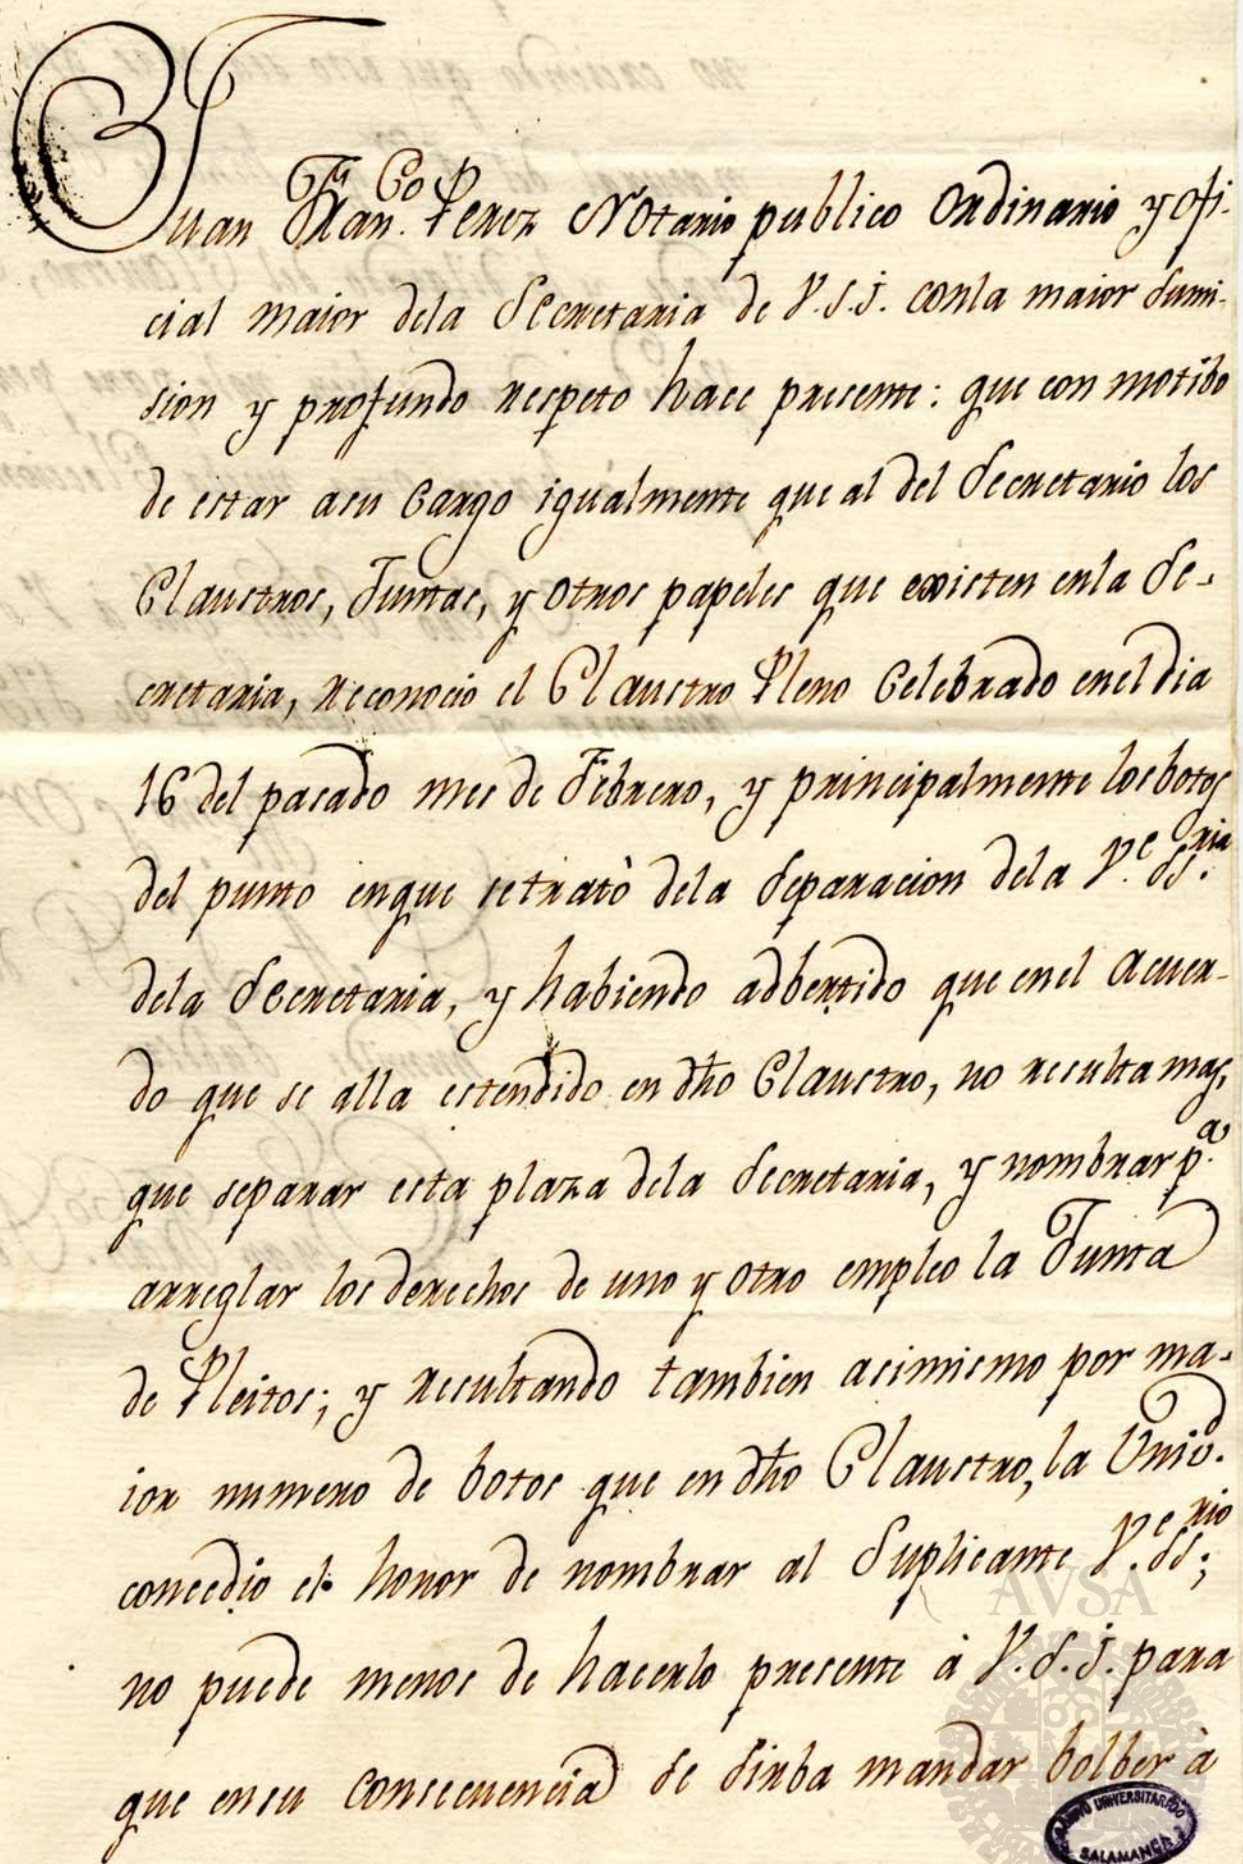 Juan Fran.co Perez Notario publico Ordinario y ofi-
cial maior dela Secretaria de V.S.J. conla maior sumi-
sion y profundo respeto hace presente: que con motibo
de estar asu Cargo igualmente que al del Secretario los
Claustros, Juntas, y otros papeles que existen enla Se-
cretaria, reconocio el Claustro Pleno Celebrado enel dia
16 del pasado mes de Febrero, y principalmente los botos
del punto enque se tratò dela Separacion dela V.e SS.ria
dela Secretaria, y habiendo adbertido que enel acuer-
do que se alla estendido en dho Claustro, no resulta mas,
que separar esta plaza dela Secretaria, y nombrar p.a
arreglar los derechos de uno y otro empleo la Junta
de Pleitos; y resultando tambien asimismo por ma-
ior numero de botos que en dho Claustro, la Univ.d
concedio el honor de nombrar al Suplicante V.e SS.rio;
no puede menos de hacerlo presente à V.S.J. para
que ensu consecuencia se sirba mandar bolber à
AVSA
ARCHIVO UNIVERSITARIO
SALAMANCA